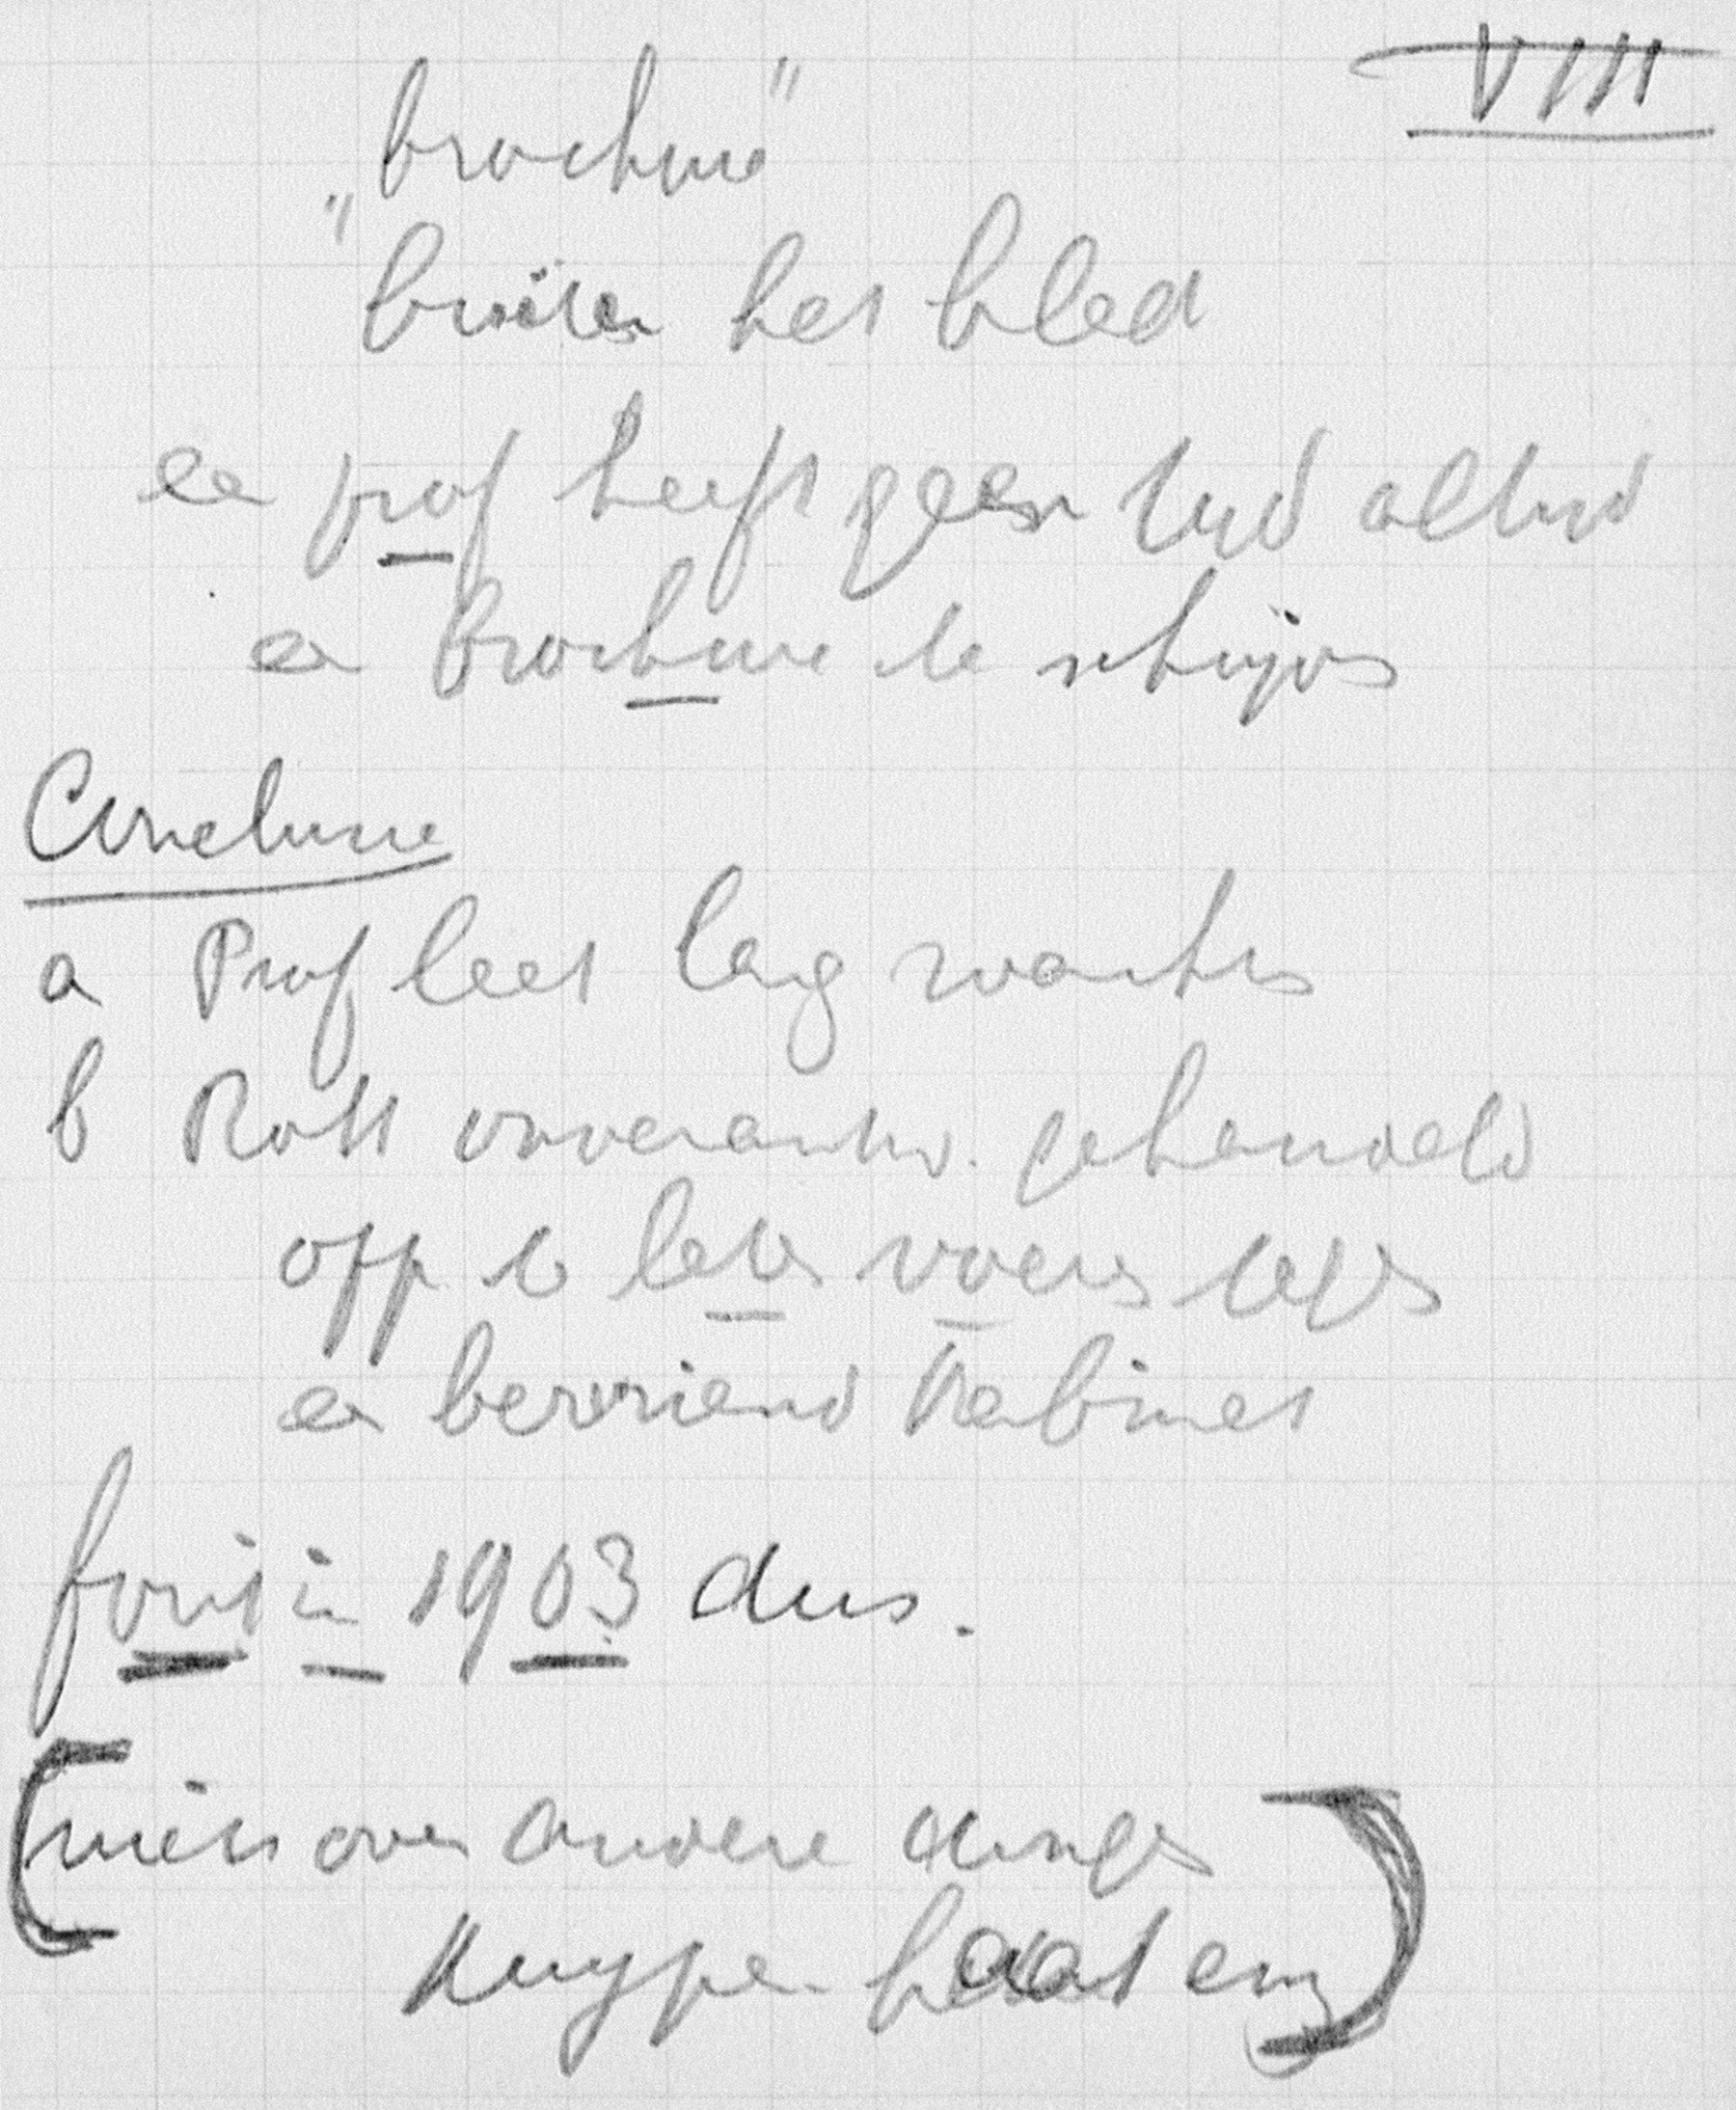 VIII
"brochure"
"buiten het blad
een prof heeft geen tijd altijd
een brochure te schrijven
Conclusie
a Prof leest lang wachten
b Rost onverantw. gehandeld
opp te laten voeren tegen
een bevriend Kabinet
fout in 1903 dus.
(niets over andere dingen
Kuyper haat enz)